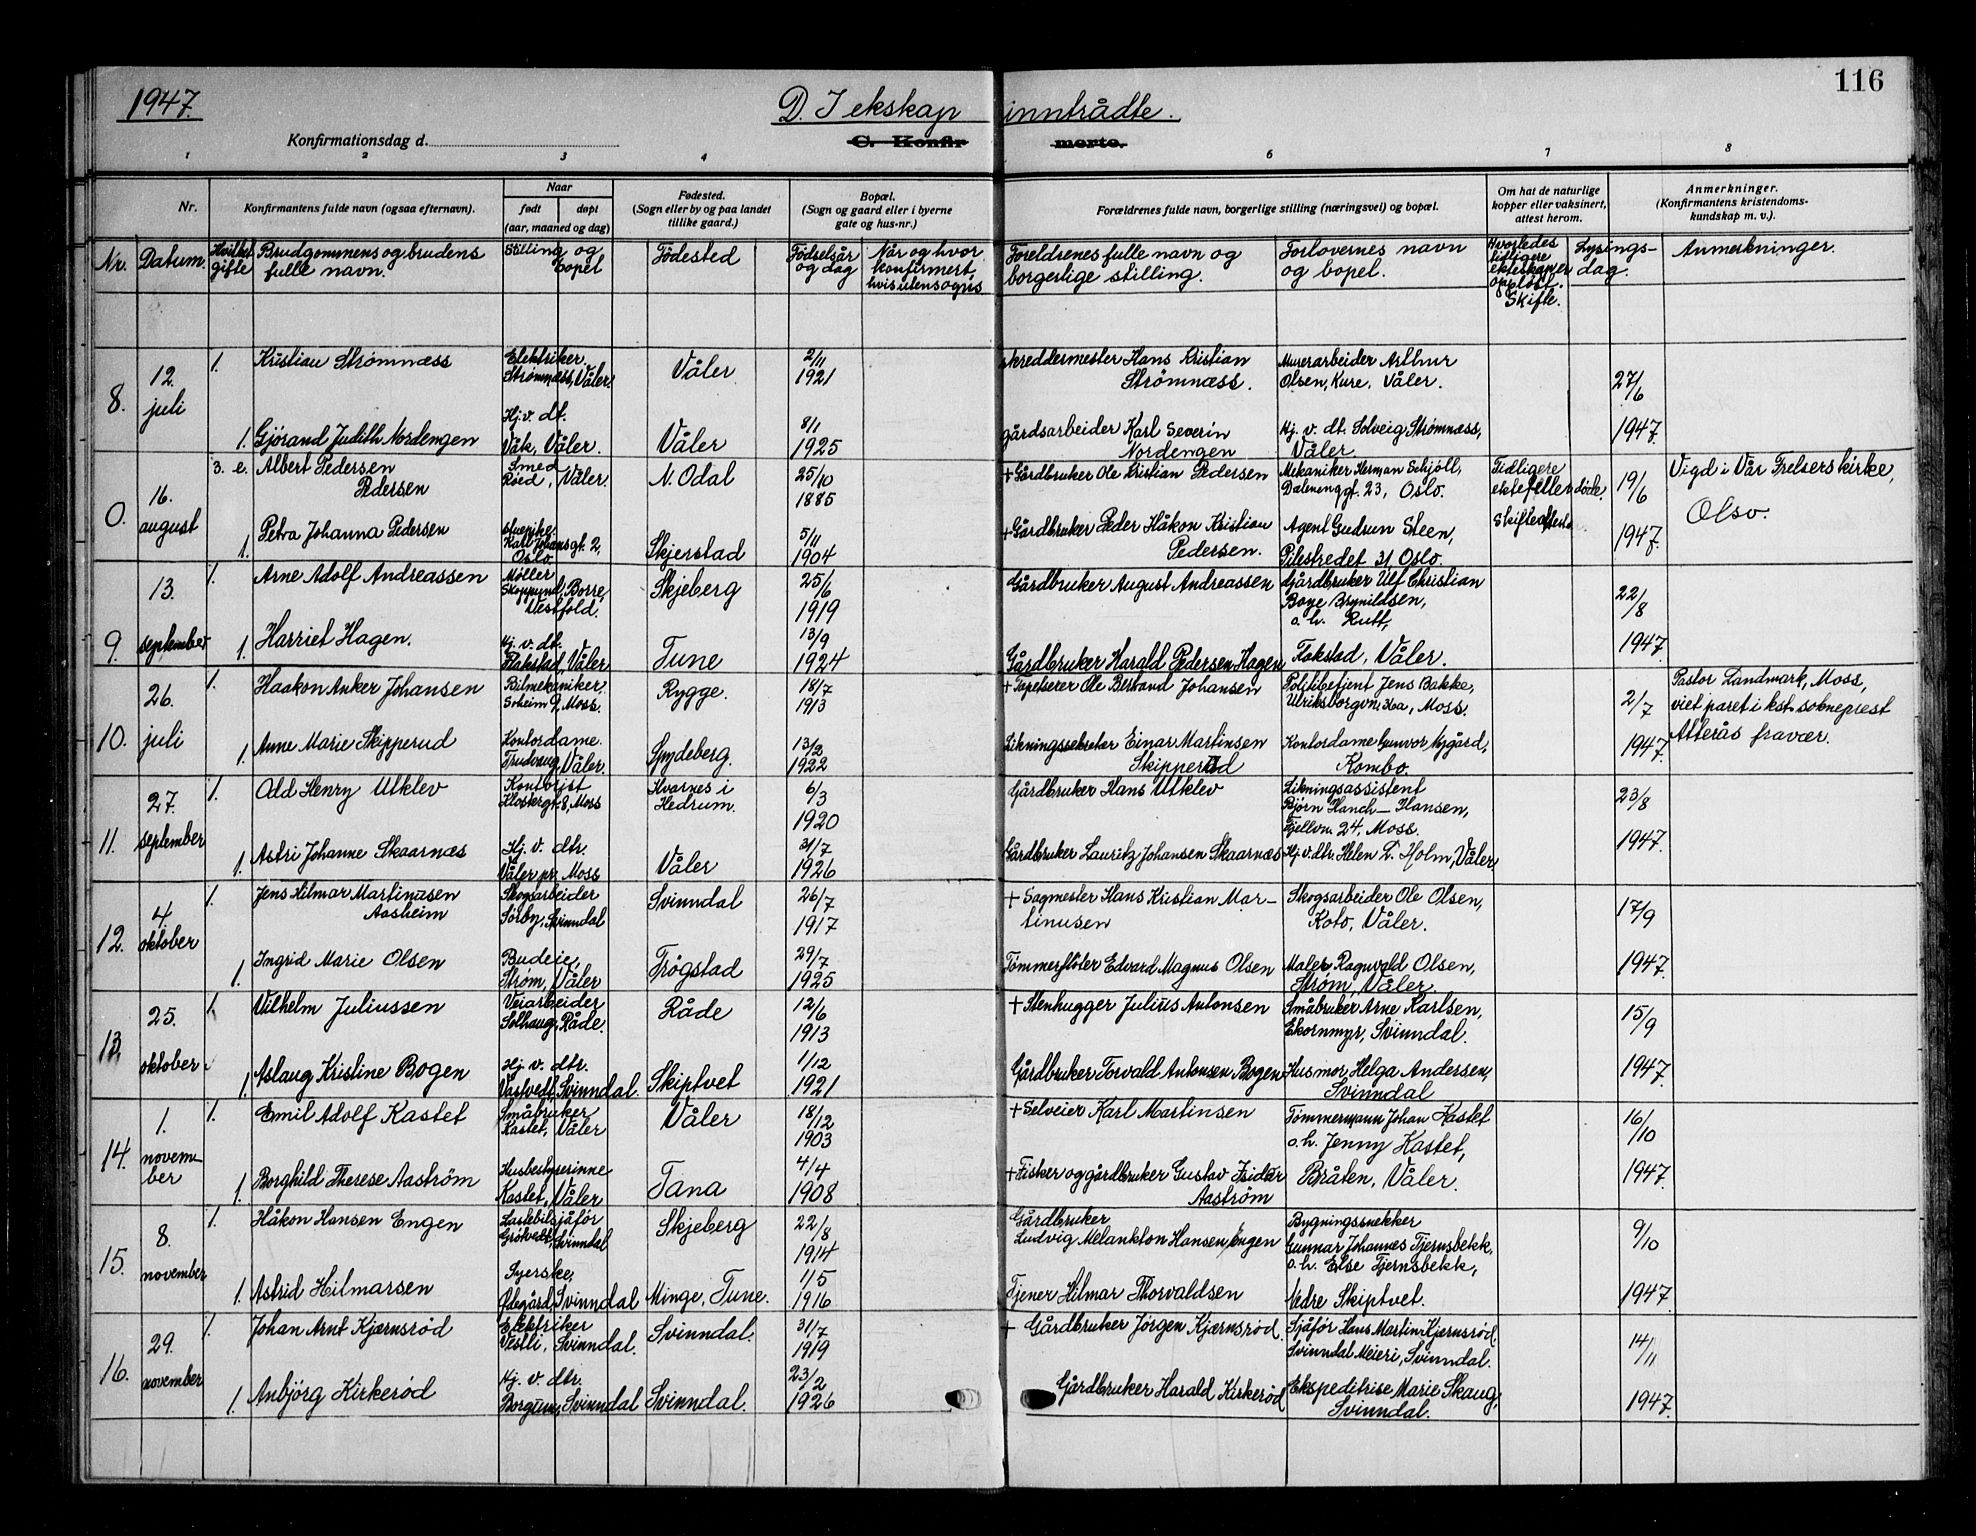 1947.
D. I ekskap inntrådte.
116
Konfirmationsdag d.
C. Konfirmerte.
1 2 3 4 6 7 8
Nr.
Konfirmantens fulde navn (ogsaa efternavn).
Naar
født
døpt
(aar, maaned og dag)
Fødested.
(Sogn eller by og paa landet
tillike gaard.)
Bopæl.
(Sogn og gaard eller i byerne
gate og hus-nr.)
Forældrenes fulde navn, borgerlige stilling (næringsvei) og bopæl.
Om hat de naturlige
kopper eller vaksinert,
attest herom.
Anmerkninger.
(Konfirmantens kristendoms-
kundskap m. v.).
Nr.
Datum.
Hvilket
gifte
Brudgommens og brudens
fulle navn.
Stilling og
bopel
Fødested
Fødselsår
og dag
Når og hvor
konfirmert,
hvis utensogns
Foreldrenes fulle navn og
borgerlige stilling.
Forlovernes navn
og bopel.
Hvorledes
tidligere
ekteskap er
oppløst.
Skifte.
Lysings-
dag.
Anmerkninger.
8.
12.
juli
1.
Kristian Strømnæss
Elektriker
Strømnæss, Våler.
Våler.
2/11
1921
skreddermester Hans Kristian
Strømnæss.
Murerarbeider Arthur
Olsen, Kure, Våler.
27/6
1947.
1.
Gjørand Judith Nordengen
Hj. v. dt.
Våk, Våler.
Våler
8/1
1925
gårdsarbeider Karl Severin
Nordengen
Hj. v. dt. Solveig Strømnæss,
Våler.
0.
16.
august
3. e.
Albert Pedersen
Pedersen
Smed
Røed, Våler.
N. Odal
25/10
1885
+ Gårdbruker Ole Kristian Pedersen
Mekaniker Herman Schjöll,
Dælenenggt. 23, Oslo.
Tidligere
ektefeller døde.
Skifteattester
19/6
1947.
Vigd i Vår Frelsers kirke,
Olso.
1.
Petra Johanna Pedersen
stuepike
Karl Johansgt. 2,
Oslo.
Skjerstad
5/11
1904
+ Gårdbruker Peder Håkon Kristian
Pedersen.
Agent Gudrun Steen,
Pilestredet 31 Oslo.
9.
13.
september
1.
Arne Adolf Andreassen
Møller
Skoppum, Borre,
Vestfold.
Skjeberg
25/6
1919
Gårdbruker August Andreassen
Gjårdbruker Ulf Christian
Boye Brynildsen,
o. h. Rutt,
22/8
1947.
1.
Harriet Hagen.
Hj. v. dt.
Flakstad, Våler
Tune
13/9
1924
Gårdbruker Harald Pedersen Hagen
Flakstad, Våler.
10.
26.
juli
1.
Haakon Anker Johansen
Bilmekaniker
Soheim 9, Moss.
Rygge.
18/7
1913
+ Tapetserer Ole Bertrand Johansen
Politibetjent Jens Bakke,
Ulriksborgvn. 36a, Moss.
2/7
1947.
Pastor Landmark, Moss,
viet paret i kst. sokneprest
Atterås fravær.
1.
Anne Marie Skipperud
Kontordame
Trudvang, Våler.
Spydeberg.
13/2
1922
Likningssekretær Einar Martinsen
Skipperud
Kontordame Gunvor Nygård,
Kambo.
11.
27.
september
1.
Odd Henry Utklev
Kontorist
Klostergt. 8, Moss
Kvarnes i
Hedrum.
6/3
1920
Gårdbruker Hans Utklev
Likningsassistent
Björn Hanch-Hansen,
Fjellvn. 24, Moss.
23/8
1947.
1.
Astri Johanne Skaarnæs
Hj. v. dtr.
Våler pr. Moss
Våler
31/7
1926
Gårdbruker Lauritz Johansen Skaarnæs
Hj. v. dtr. Helen D. Holm, Våler
12.
4.
oktober
1.
Jens Hilmar Martinusen
Aasheim
Skogsarbeider
Sörby, Svinndal
Svinndal
26/7
1917
+ Sagmester Hans Kristian Mar-
tinusen
Skogsarbeider Ole Olsen,
Koto, Våler.
17/9
1947.
1.
Ingrid Marie Olsen
Budeie,
Strøm, Våler
Trøgstad
29/7
1925
Tømmerfløter Edvard Magnus Olsen
Maler Ragnvald Olsen,
Strøm, Våler
13.
25.
oktober
1.
Vilhelm Juliussen
Veiarbeider
Solhaug, Råde.
Råde
12/6
1913
+ Stenhugger Julius Antonsen
Småbruker Arne Karlsen,
Ekornmyr, Svinndal.
15/9
1947.
1.
Aslaug Kristine Bogen
Hj. v. dtr.
Vastvedt, Svinndal.
Skiptvet
1/12
1921
Gårdbruker Torvald Antonsen Bogen
Husmor Helga Andersen,
Svinndal
14.
1.
novem-
ber
1.
Emil Adolf Kastet
Småbruker
Kastet, Våler
Våler
18/12
1903
+ Selveier Karl Martinsen
Tømmermann Johan Kastet
o. h. Jenny Kastet,
16/10
1947.
1.
Borghild Therese Aastrøm
Husbestyrerinne
Kastet, Våler
Tana
4/4
1908
+ Fisker og gårdbruker Gustav Isidør
Aastrøm
Bråten, Våler.
15.
8.
november
1.
Håkon Hansen Engen
Lastebilsjåför
Grötvedt, Svinndal
Skjeberg
22/8
1914
Gårdbruker
Ludvig Melankton Hansen Engen
Bygningssnekker
Gunnar Johannes Tjernsbekk,
o. h. Else Tjernsbekk,
9/10
1947.
1.
Astrid Hilmarsen
Syerske,
Ødegård, Svinndal
Minge, Tune.
1/5
1916
Tjener Hilmar Thorvaldsen
Nedre Skiptvet.
16.
29.
november
1.
Johan Arnt Kjærnsrød
Elektriker
Vestli, Svinndal.
Svinndal.
31/7
1919
+ Gårdbruker Jörgen Kjærnsrød.
Sjåför Hans Martin Kjærnsrød,
Svinndal Meieri, Svinndal.
14/11
1947.
1.
Anbjörg Kirkerød
Hj. v. dtr.
Borgund, Svinndal
Svinndal.
23/2
1926
Gårdbruker Harald Kirkerød
Ekspeditrise Marie Skaug,
Svinndal.